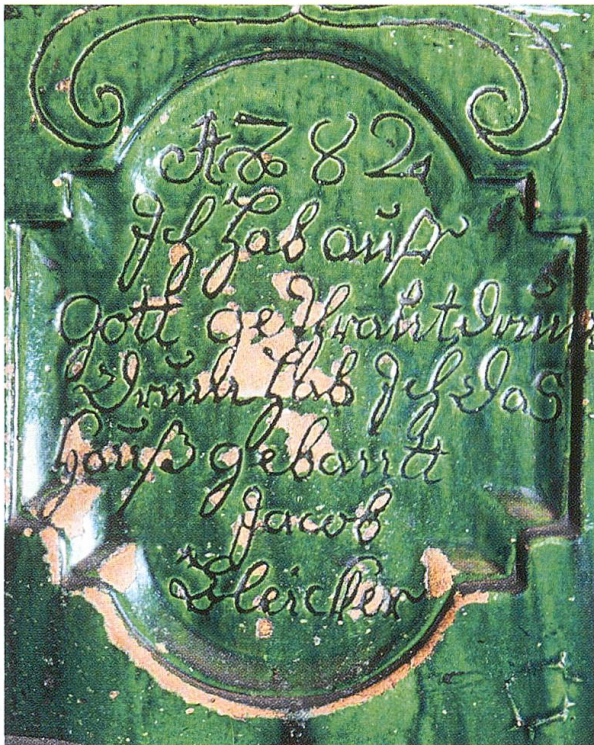 1782
Jch hab auff
gott gedraut drum
drum hab Jch das
hauß gebautt
Jacob
Bleicker